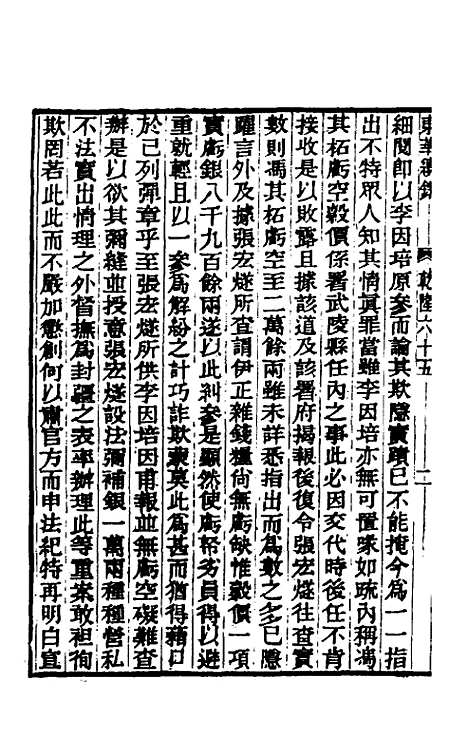 東華續錄 乾隆六十五 二
細閱卽以李因培原參而論其欺隱實蹟已不能掩今爲一一指
出不特眾人知其情眞罪當雖李因培亦無可置喙如疏內稱馮
其柘虧空穀價係署武陵縣任內之事此必因交代時後任不肯
接收是以敗露且據該道及該署府揭報後復令張宏燧往查實
數則馮其柘虧空至二萬餘兩雖未詳悉指出而爲數之多已隱
躍言外及據張宏燧所查謂伊正雜錢糧尙無虧缺惟穀價一項
實虧銀八千九百餘兩遂以此糾參是顯然使虧帑劣員得以避
重就輕且以一參爲解紛之計巧詐欺蒙莫此爲甚而猶得藉口
於已列彈章乎至張宏燧所供李因培因甫報並無虧空礙難查
辦是以欲其彌縫並授意張宏燧設法彌補銀一萬兩種種營私
不法實出情理之外督撫爲封疆之表率辦理此等重案敢袒徇
欺罔若此此而不嚴加懲創何以肅官方而申法紀特再明白宣